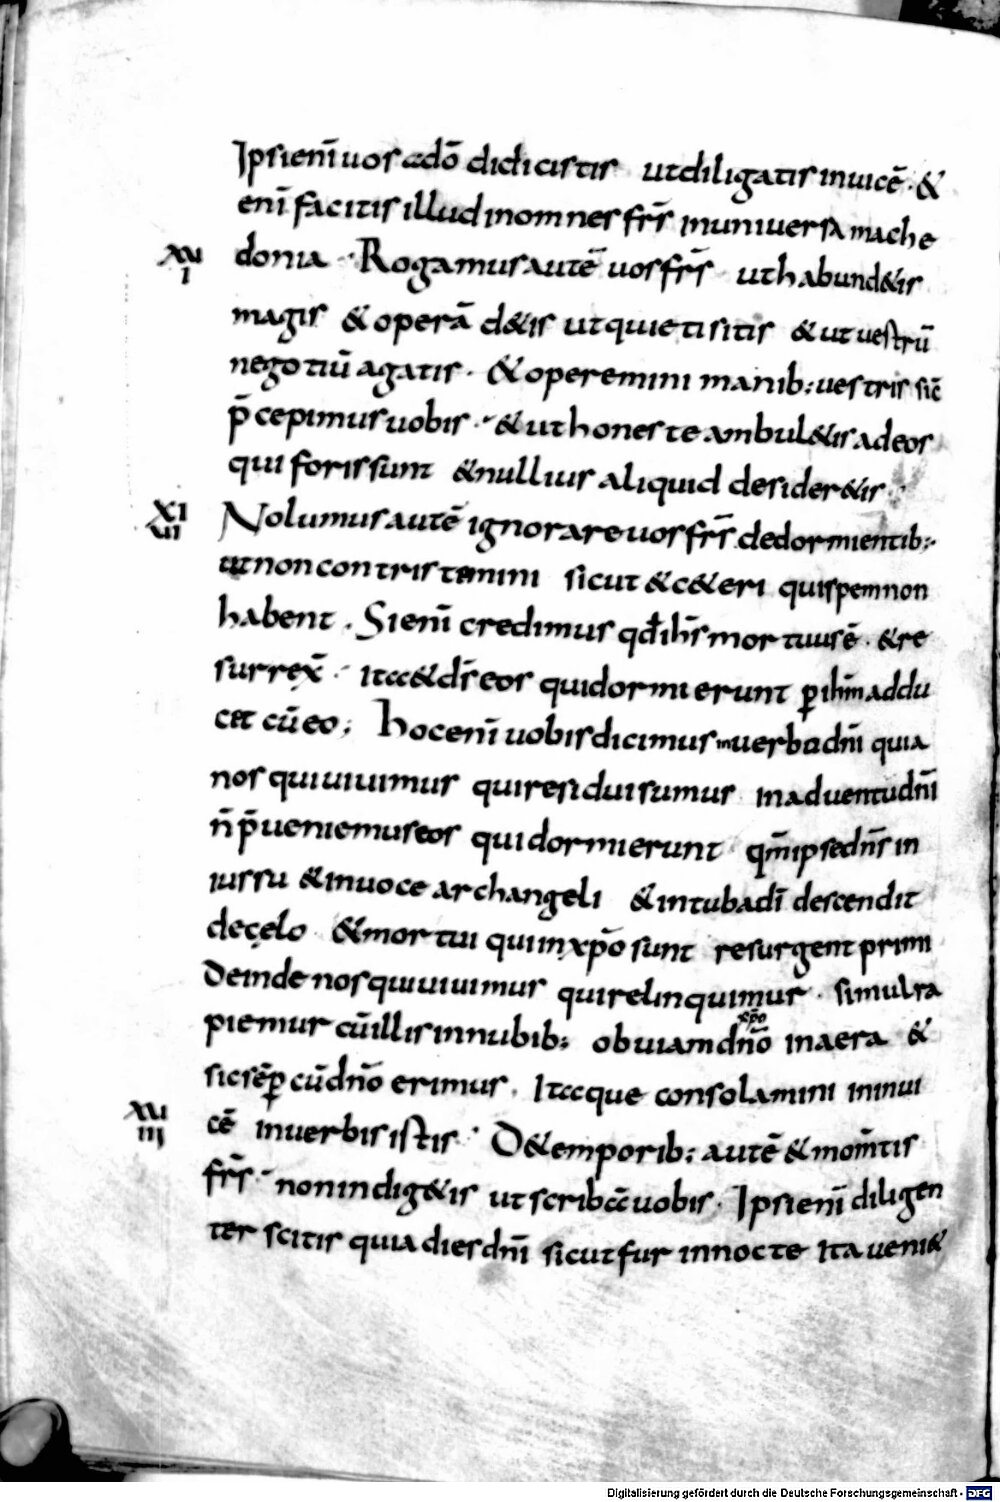 Ipsi enī uos a dō didicistis ut diligatis inuicē · &
enī facitis illud in omnes frs̄ in uniuersa mache
XVI donia · Rogamus autē uos frs̄ ut habund&is
magis & operā d&is ut quieti sitis & ut uestrū
negotiū agatis · & operemini manib: uestris sic̄
p̄cepimus uobis · & ut honeste ambul&is ad eos
qui foris sunt & nullius aliquid desider&is ·
XVII Nolumus autē ignorare uos frs̄ de dormientib:
ut non contristemini sicut & c&eri qui spem non
habent . Si enī credimus qđ ihs̄ mortuus ē · & re
surrex̄ · ita & ds̄ eos qui dormierunt ꝑ ihm̄ addu
cet cū eo ; hoc enī uobis dicimus in uerbo dnī quia
nos qui uiuimus qui residui sumus in aduentu dnī
n̄ p̄ueniemus eos qui dormierunt qm̄ ipse dns̄ in
iussu & in uoce archangeli & in tuba dī descendit
de cęlo & mortui qui in xp̄o sunt resurgent primi
Deinde nos qui uiuimus qui relinquimur · simul ra
piemur cū illis in nubib: obuiam dn̄o xp̄o in aera &
sic sēꝑ cū dn̄o erimus . Itaque consolamini inui
XVIII cē in uerbis istis · D& emporib: autē & mom̄tis
frs̄ · non indig&is ut scribā uobis · Ipsi enī diligen
ter scitis quia dies dnī sicut fur in nocte ita ueni&
Digitalisierung gefördert durch die Deutsche Forschungsgemeinschaft - DFG